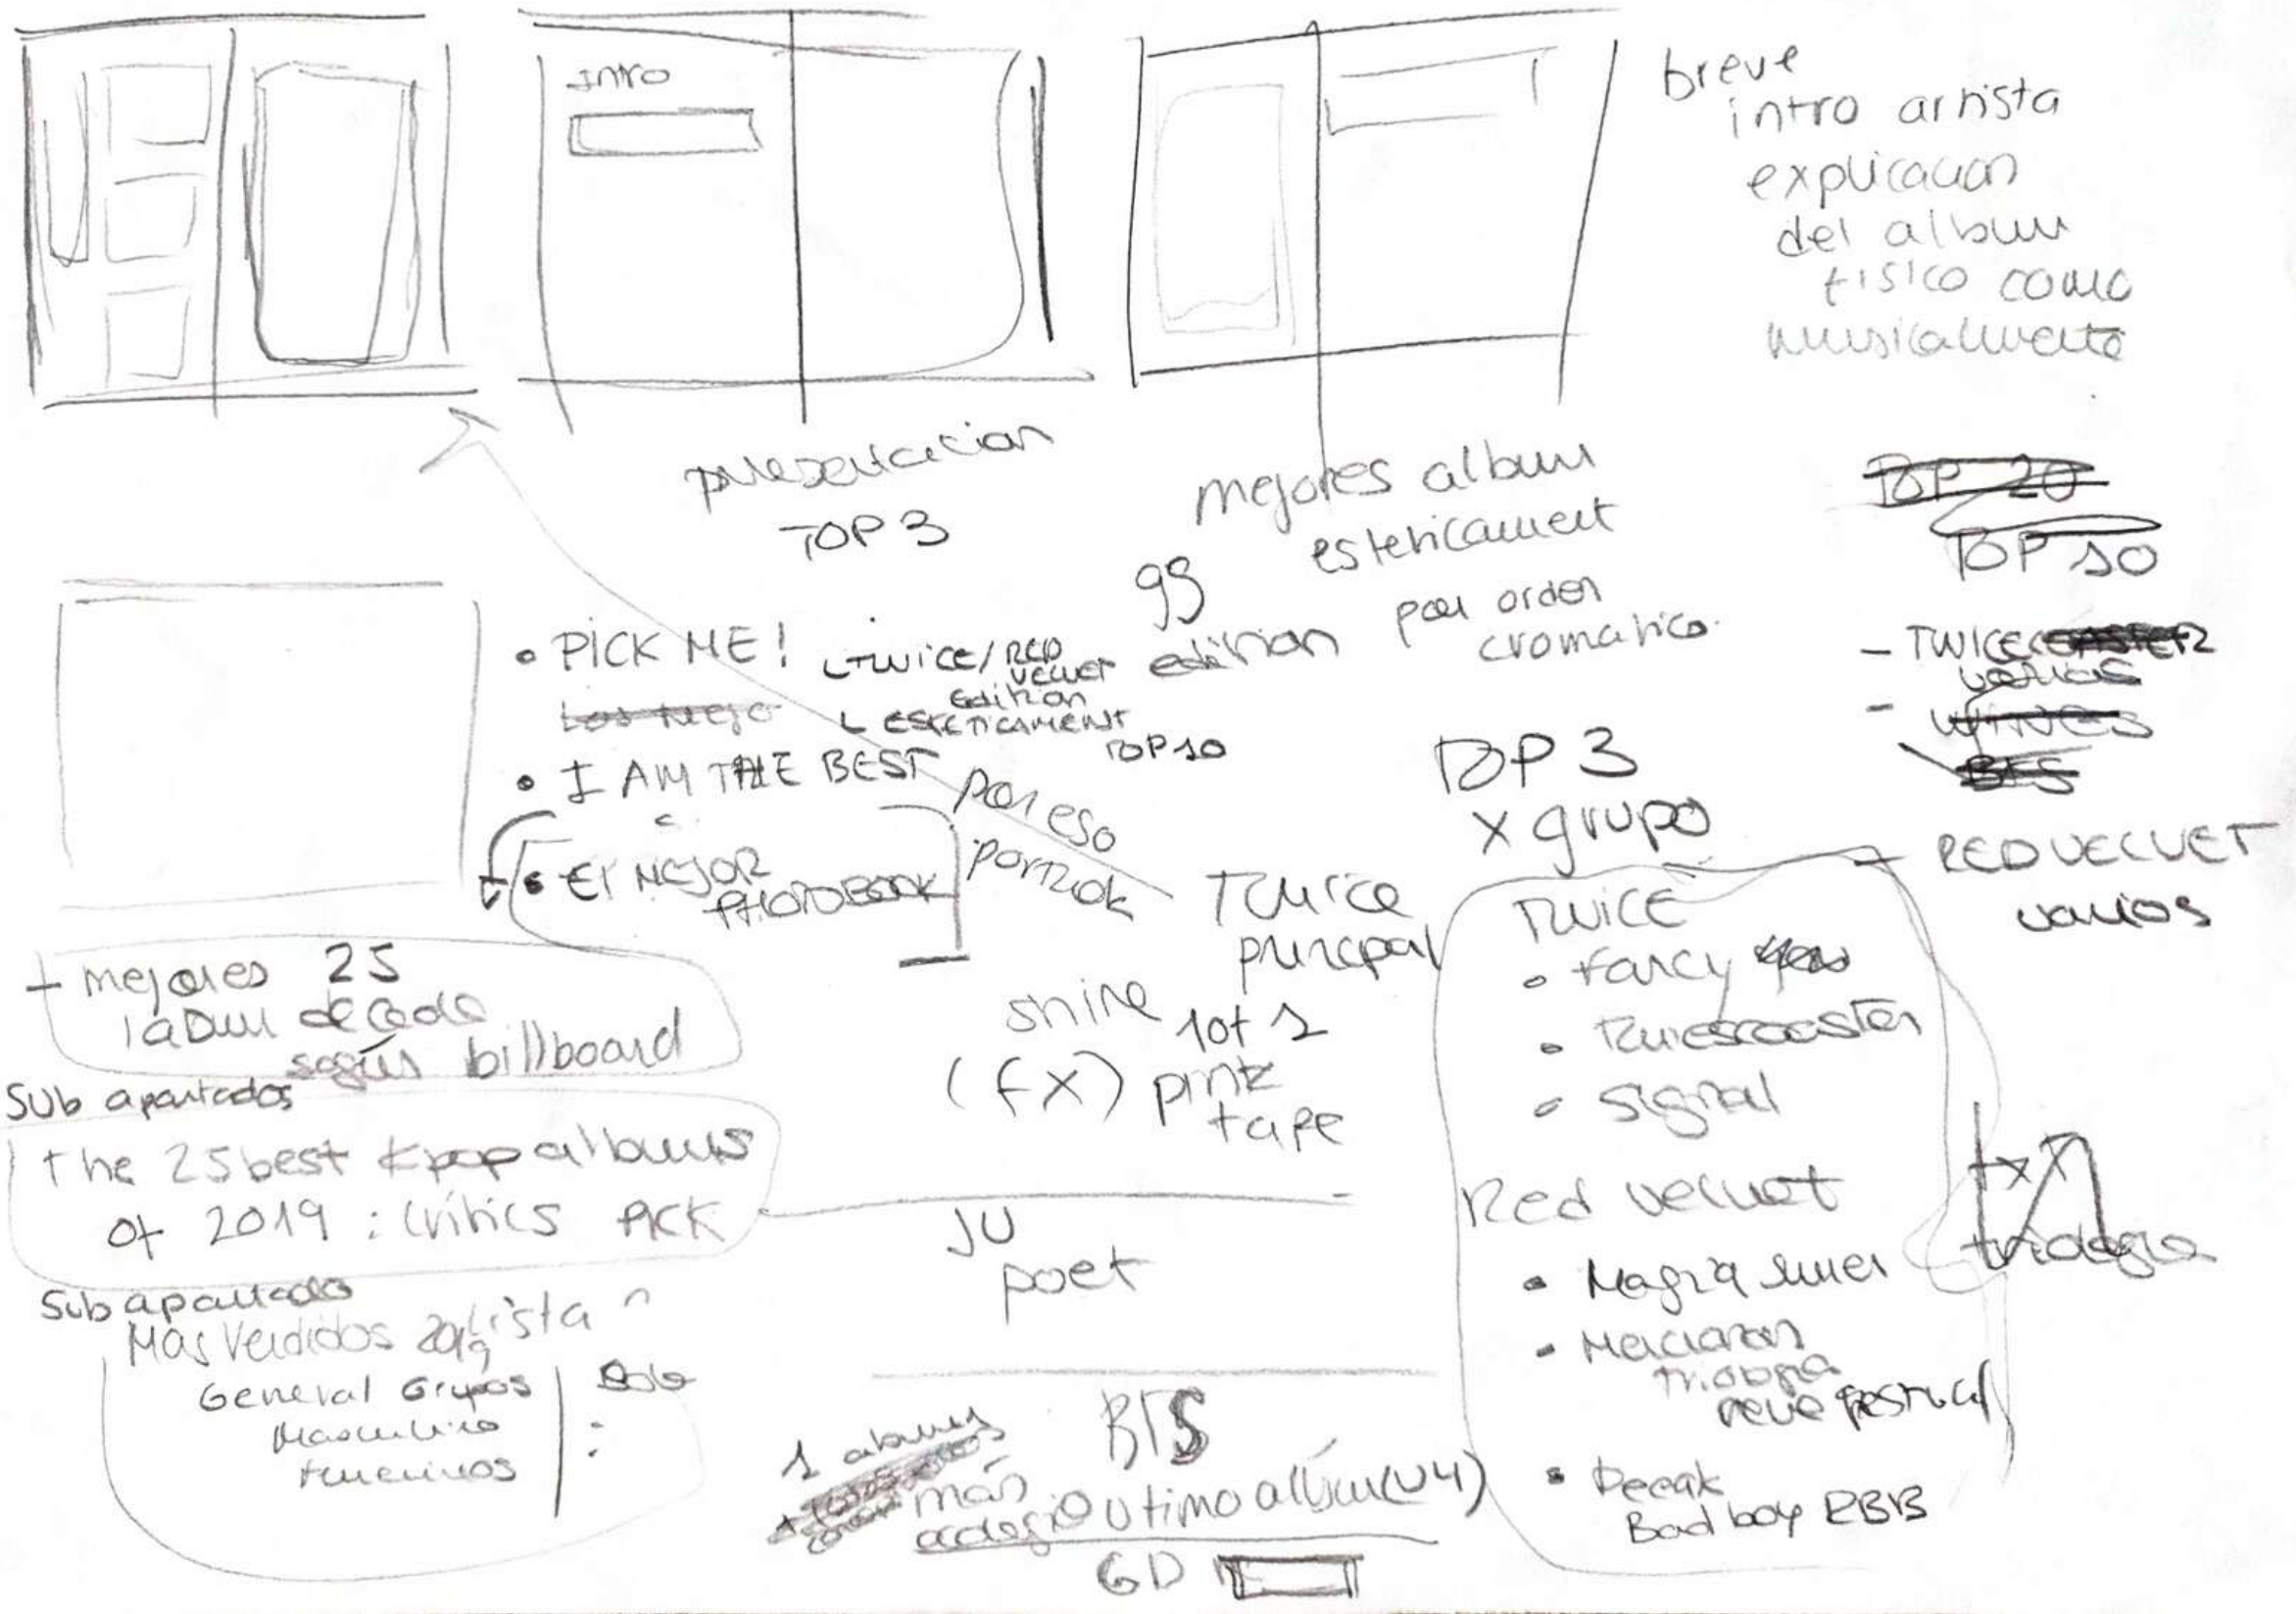 Intro
breve
intro artista
explicacion
del album
fisico como
musicalmente
presentacion
TOP 3
mejores album
esteticament
por orden
cromatico.
gg
edition
TOP 20
TOP 10
- TWICE
varios
- WINGS
BTS
- RED VELVET
varios
• PICK ME!
TWICE/RED
VELVET
Edition
ESTETICAMENT
TOP 10
Los mejo
• I AM THE BEST
• El MEJOR
PHOTOBOOK
por eso
TOP 3
x grupo
Twice
principal
TWICE
• Fancy
• Twicecoaster
• Signal
Red velvet
•
•
trilogia
reve festival
•
Bad boy RBB
trilogia
+ mejores 25
según billboard
Sub apartados
the 25 best kpop albums
of 2019 : critics PICK
Sub apartado
Mas Vendidos 2019 lista
General Grupos
Masculino
femeninos
Solo
shine
1 of 1
(fx) pink
tape
IU
poet
BTS
1 albumes
más
ultimo album
GD